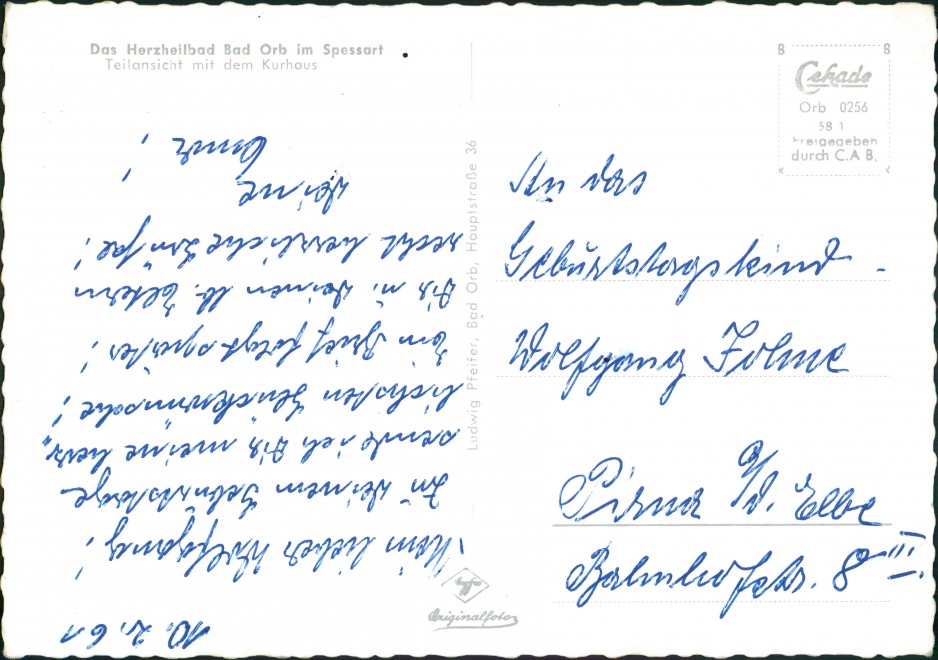 Das Herzheilbad Bad Orb im Spessart
Teilansicht mit dem Kurhaus
10. 2. 61
Mein lieber Wolfgang!
Zu Deinem Geburtstage
sende ich Dir meine herz-
lichsten Glückwünsche!
Ein Brief folgt später!
Dir u. Deinen lb. Eltern
recht herzliche Grüße!
Deine
Ludwig Pfeifer, Bad Orb, Hauptstraße 36
Originalfoto
B B
Cekade
Orb 0256
58 1
Freigegeben
durch C.A B.
An das
Geburtstagskind -
Wolfgang
Pirna a/d. Elbe
Bahnhofstr. 8 III.